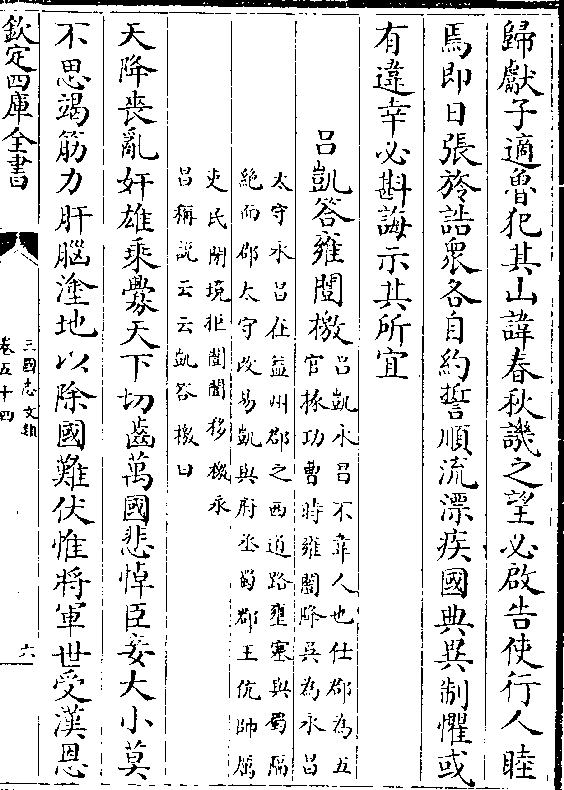 歸獻子適魯犯其山諱春秋譏之望必啟告使行人睦
焉即日張旍誥衆各自約誓順流漂疾國典異制懼或
有違幸必斟誨示其所宜
吕凱答雍闓檄
吕凱永昌不韋人也仕郡為五
官掾功曹時雍闓降吳為永昌
太守永昌在益州郡之西道路壅塞與蜀隔
絶而郡太守改易凱與府丞蜀郡王伉帥厲
吏民閉境拒闓闓移檄永
昌稱説云云凱答檄曰
天降喪亂奸雄乘釁天下切齒萬國悲悼臣妾大小莫
不思竭筋力肝腦塗地以除國難伏惟將軍世受漢恩
欽定四庫全書
三國志文類
卷五十四
六